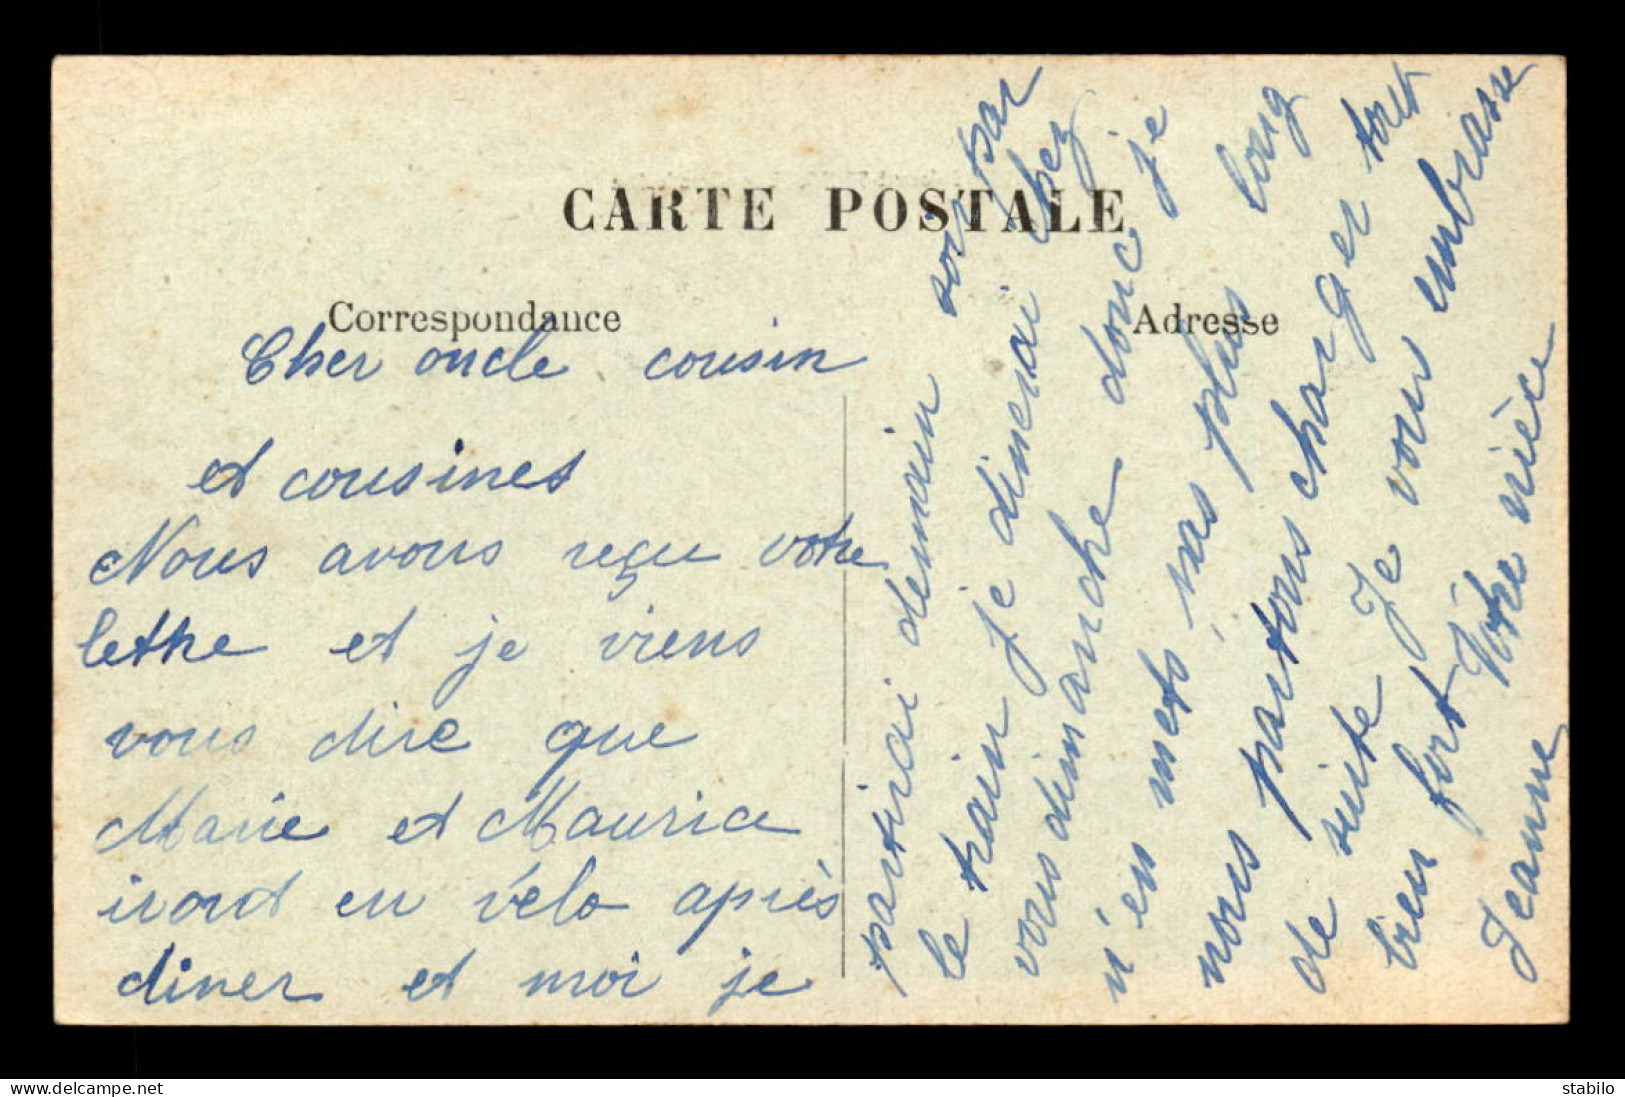 CARTE POSTALE
Correspondance
Adresse
Cher oncle cousin
et cousines
Nous avons reçu votre
lettre et je viens
vous dire que
Marie et Maurice
iront en vélo après
diner et moi je
partirai demain soir par
le train je dinerai chez
vous dimanche donc je
n'en mets pas plus long
nous partons charger tout
de suite Je vous embrasse
bien fort Votre nièce
Jeanne
www.delcampe.net
stabilo